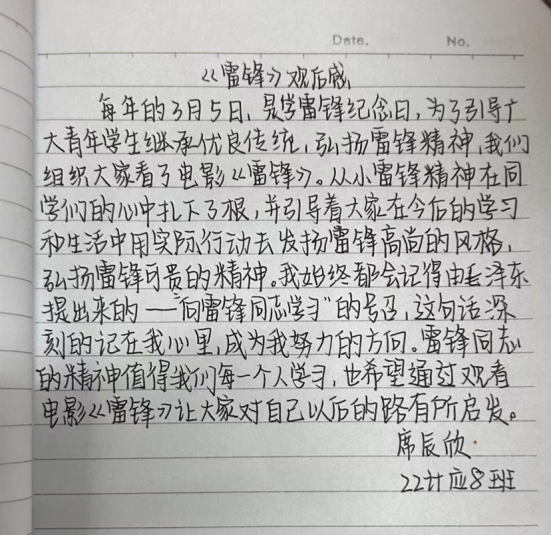 Date. No.
《雷锋》观后感
每年的3月5日,是学雷锋纪念日,为了引导广
大青年学生继承优良传统,弘扬雷锋精神,我们
组织大家看了电影《雷锋》。从小雷锋精神在同
学们的心中扎下了根,并引导着大家在今后的学习
和生活中用实际行动去发扬雷锋高尚的风格,
弘扬雷锋可贵的精神。我始终都会记得由毛泽东
提出来的一“向雷锋同志学习”的号召,这句话深
刻的记在我心里,成为我努力的方向。雷锋同志
的精神值得我们每一个人学习,也希望通过观看
电影《雷锋》让大家对自己以后的路有所启发。
席辰欣
22计应8班